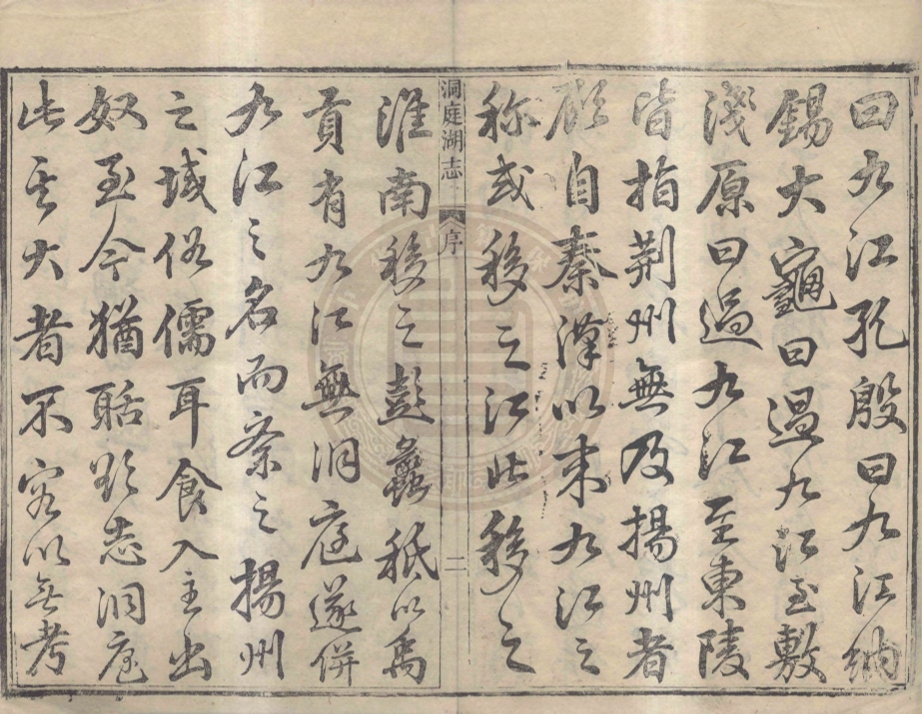 曰九江孔殷曰九江納
錫大龜曰過九江至敷
淺原曰過九江至東陵
皆指荆州無及揚州者
自秦漢以来九江之
称或移之江北移之
洞庭湖志 序 二
淮南移之彭蠡秖以禹
貢有九江無洞庭遂併
九江之名而系之揚州
之域俗儒耳食入主出
奴至今猶聒欤志洞庭
此其大者不容以無考